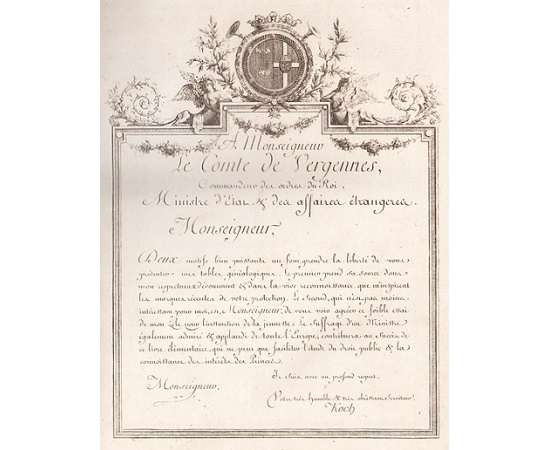 A Monseigneur
Le Comte de Vergennes,
Commandeur des ordres du Roi,
Ministre d'Etat & des affaires étrangeres.
Monseigneur,
Deux motifs bien puissants me font prendre la liberté de vous
présenter mes tables généalogiques. Le premier prend sa source dans
mon respectueux dévouement & dans la vive reconnoissance que m'inspirent
les marques récentes de votre protection. Le second, qui n'est pas moins
intéressant pour moi, est, Monseigneur, de vous voir agréer ce foible essai
de mon Zèle pour l'instruction de la jeunesse. Le suffrage d'un Ministre
également admiré & applaudi de toute l'Europe, contribuera au succès de
ce livre élémentaire, qui ne peut que faciliter l'étude du droit public & la
connoissance des intérêts des Princes.
Je suis avec un profond respect,
Monseigneur,
Votre très humble & très obéissant serviteur
Koch